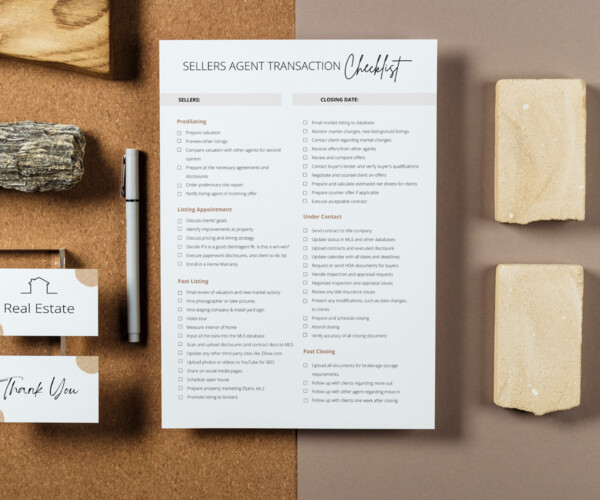 SELLERS AGENT TRANSACTION Checklist
SELLERS:
CLOSING DATE:
Prelisting
Prepare valuation
Preview other listings
Compare valuation with other agents for second
opinion
Prepare all the necessary agreements and
disclosures
Order preliminary title report
Notify listing agent of incoming offer
Listing Appointment
Discuss clients' goals
Identify improvements at property
Discuss pricing and timing strategy
Decide if it is a good client/agent fit. Is this a win-win?
Execute paperwork disclosures, and client to do list
Enroll in a Home Warranty
Past Listing
Final review of valuation and new market activity
Hire photographer or take pictures
Hire staging company & install yard sign
Video tour
Measure interior of home
Input all the data into the MLS database
Scan and upload disclosures and contract docs to MLS
Update any other third party sites like Zillow.com
Upload photos or videos to YouTube for SEO
Share on social media pages
Schedule open house
Prepare property marketing (flyers, etc.)
Promote listing to brokers
Email market listing to database
Monitor market changes, new listings/sold listings
Contact client regarding market changes
Receive offers from other agents
Review and compare offers
Contact buyer's lender and verify buyer's qualifications
Negotiate and counsel client on offers
Prepare and calculate estimated net sheets for clients
Prepare counter offer if applicable
Execute acceptable contract
Under Contact
Send contract to title company
Update status in MLS and other databases
Upload contracts and executed disclosure
Update calendar with all dates and deadlines
Request or send HOA documents for buyers
Handle inspection and appraisal requests
Negotiate inspection and appraisal issues
Review any title insurance issues
Present any modifications, such as date changes,
to clients
Prepare and schedule closing
Attend closing
Verify accuracy of all closing document
Past Closing
Upload all documents for brokerage storage
requirements,
Follow up with clients regarding move out
Follow up with other agent regarding move in
Follow up with clients one week after closing
Real Estate
Thank You